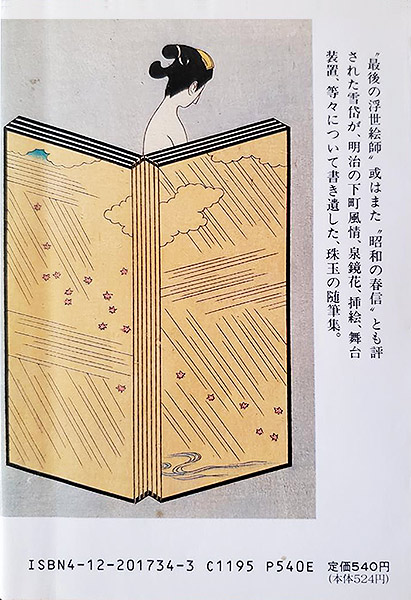 〝最後の浮世絵師〟或はまた〝昭和の春信〟とも評
された雪岱が、明治の下町風情、泉鏡花、挿絵、舞台
装置、等々について書き遺した、珠玉の随筆集。
ISBN4-12-201734-3 C1195 P540E 定価540円
(本体524円)